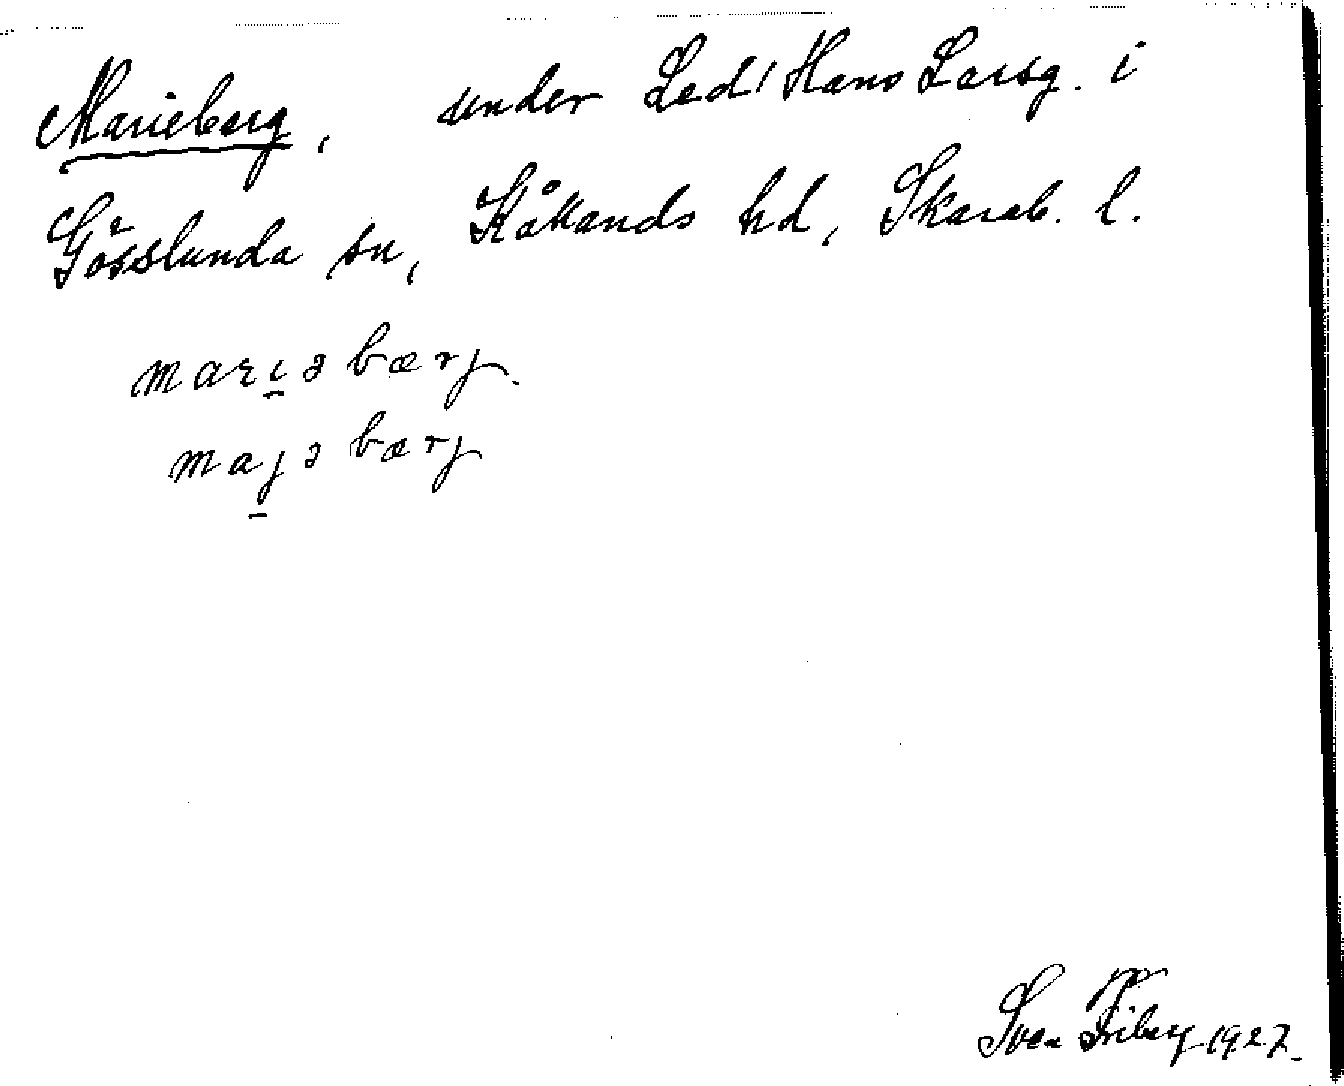 Marieberg, under Led! Hans Larsg. i
Gösslunda sn, Kållands hd, Skarab. l.
mari̱əbærj.
maj̱əbærj
Sven Friberg 1927.